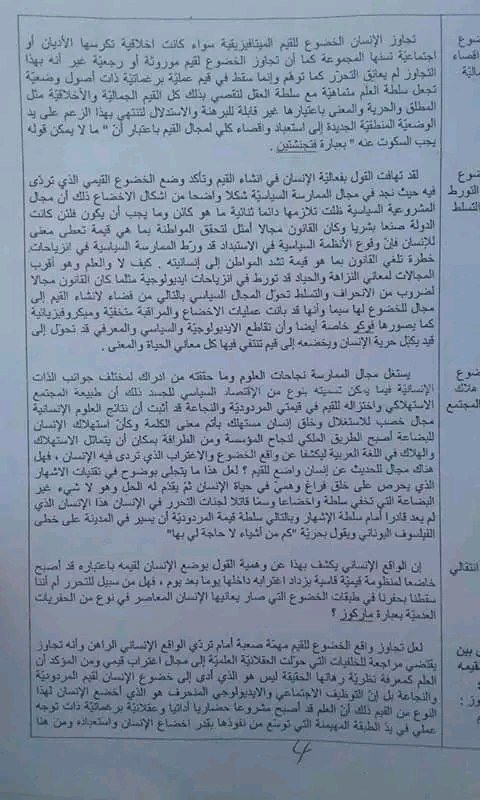 تجاوز الإنسان الخضوع للقيم الميتافيزيقية سواء كانت اخلاقية تكرسها الأديان أو
اجتماعيّة تسنها المجموعة كما أن تجاوز الخضوع لقيم موروثة أو رجعيّة غير أنه بهذا
التجاوز لم يعانق التحرّر كما توهّم وإنما سقط في قيم عمليّة برغماتيّة ذات أصول وضعيّة
تجعل سلطة العلم متماهية مع سلطة العقل لتقصي بذلك كل القيم الجماليّة والأخلاقيّة مثل
المطلق والحرية والمعنى باعتبارها غير قابلة للبرهنة والاستدلال لتنتهي بهذا الزعم على يد
الوضعيّة المنطقيّة الجديدة إلى استبعاد واقصاء كلي لمجال القيم باعتبار أنّ " ما لا يمكن قوله
يجب السكوت عنه " بعبارة فتجنشتين .
لقد تهافت القول بفعاليّة الإنسان في انشاء القيم وتأكد وضع الخضوع القيمي الذي تردّى
فيه حيث نجد في مجال الممارسة السياسيّة شكلا واضحا من اشكال الاخضاع ذلك أن مجال
المشروعية السياسية ظلت تلازمها دائما ثنائية ما هو كائن وما يجب أن يكون فلئن كانت
الدولة صنعا بشريا وكان القانون مجالا أمثل لتحقق المواطنة بما هي قيمة تعطى معنى
للإنسان فإنّ وقوع الأنظمة السياسية في الاستبداد قد ورّط الممارسة السياسية في انزياحات
خطرة تلغي القانون بما هو قيمة تشد المواطن إلى إنسانيته . كيف لا والعلم وهو أقرب
المجالات لمعاني النزاهة والحياد قد تورط في انزياحات ايديولوجية مثلما كان القانون مجالا
لضروب من الانحراف والتسلط تحوّل المجال السياسي بالتالي من فضاء لانشاء القيم إلى
مجال للخضوع لها سيما وأنها قد باتت عمليات الاخضاع والمراقبة متخفيّة وميكروفيزيائية
كما يصورها فوكو خاصة أيضا وأن تقاطع الايديولوجيّ والسياسي والمعرفي قد تحوّل إلى
قيد يكبّل حرية الإنسان ويخضعه إلى قيم تنتفي فيها كل معاني الحياة والمعنى .
يستغل مجال الممارسة نجاحات العلوم وما حققته من ادراك لمختلف جوانب الذات
الإنسانيّة فيما يمكن تسميته بنوع من الاقتصاد السياسي للجسد ذلك أن طبيعة المجتمع
الاستهلاكي واختزاله للقيم في قيمتي المردوديّة والنجاعة قد أثبت أن نتائج العلوم الإنسانية
مجال خصب للاستغلال وخلق إنسان مستهلك بأتم معنى الكلمة وكأنّ استهلاك الإنسان
للبضاعة أصبح الطريق الملكي لنجاح المؤسسة ومن الطرافة بمكان أن يتماثل الاستهلاك
والهلاك في اللغة العربية ليكشفا عن واقع الخضوع والاغتراب الذي تردى فيه الإنسان ، فهل
هناك مجال للحديث عن إنسان واضع للقيم ؟ لعل هذا ما يتجلى بوضوح في تقنيات الاشهار
الذي يحرص على خلق فراغ وهميّ في حياة الإنسان ثمّ يقدّم له الحل وهو لا شيء غير
البضاعة التي تخفي سلطة واخضاعا وسمّا قاتلا لجنات التحرر في الإنسان هذا الإنسان الذي
لم يعد قادرا أمام سلطة الإشهار وبالتالي سلطة قيمة المردوديّة أن يسير في المدينة على خطى
الفيلسوف اليوناني ويقول بحريّة "كم من أشياء لا حاجة لي بها"
إن الواقع الإنساني يكشف بهذا عن وهمية القول بوضع الإنسان لقيمه باعتباره قد أصبح
خاضعا لمنظومة قيميّة قاسية يزداد اغترابه داخلها يوما بعد يوم ، فهل من سبيل للتحرر أم أننا
سقطنا بحفرنا في طبقات الخضوع التي صار يعانيها الإنسان المعاصر في نوع من الحفريات
العدميّة بعبارة ماركوز ؟
لعل تجاوز واقع الخضوع للقيم مهمّة صعبة أمام تردّي الواقع الإنساني الراهن وأنه تجاوز
يقتضي مراجعة للخلفيات التي حوّلت العقلانيّة العلميّة إلى مجال اغتراب قيمي ومن المؤكد أن
العلم كمعرفة نظريّة رهانها الحقيقة ليس هو الذي أدى إلى خضوع الإنسان لقيم المردوديّة
والنجاعة بل إنّ التوظيف الاجتماعي والايديولوجي المنحرف هو الذي أخضع الإنسان لهذا
النوع من القيم ذلك أنّ العلم قد أصبح مشروعا حضاريا أداتيا وعقلانيّة برغماتيّة ذات توجه
عملي في يدّ الطبقة المهيمنة التي توسّع من نفوذها بقدر اخضاع الإنسان واستعباده ومن هنا
4
ضوع
اقصاء
ماليّة
ضوع
التورط
التسلط
ضوع
هلاك
المجتمع
انتقالي
ن بين
لقيمه
وز :